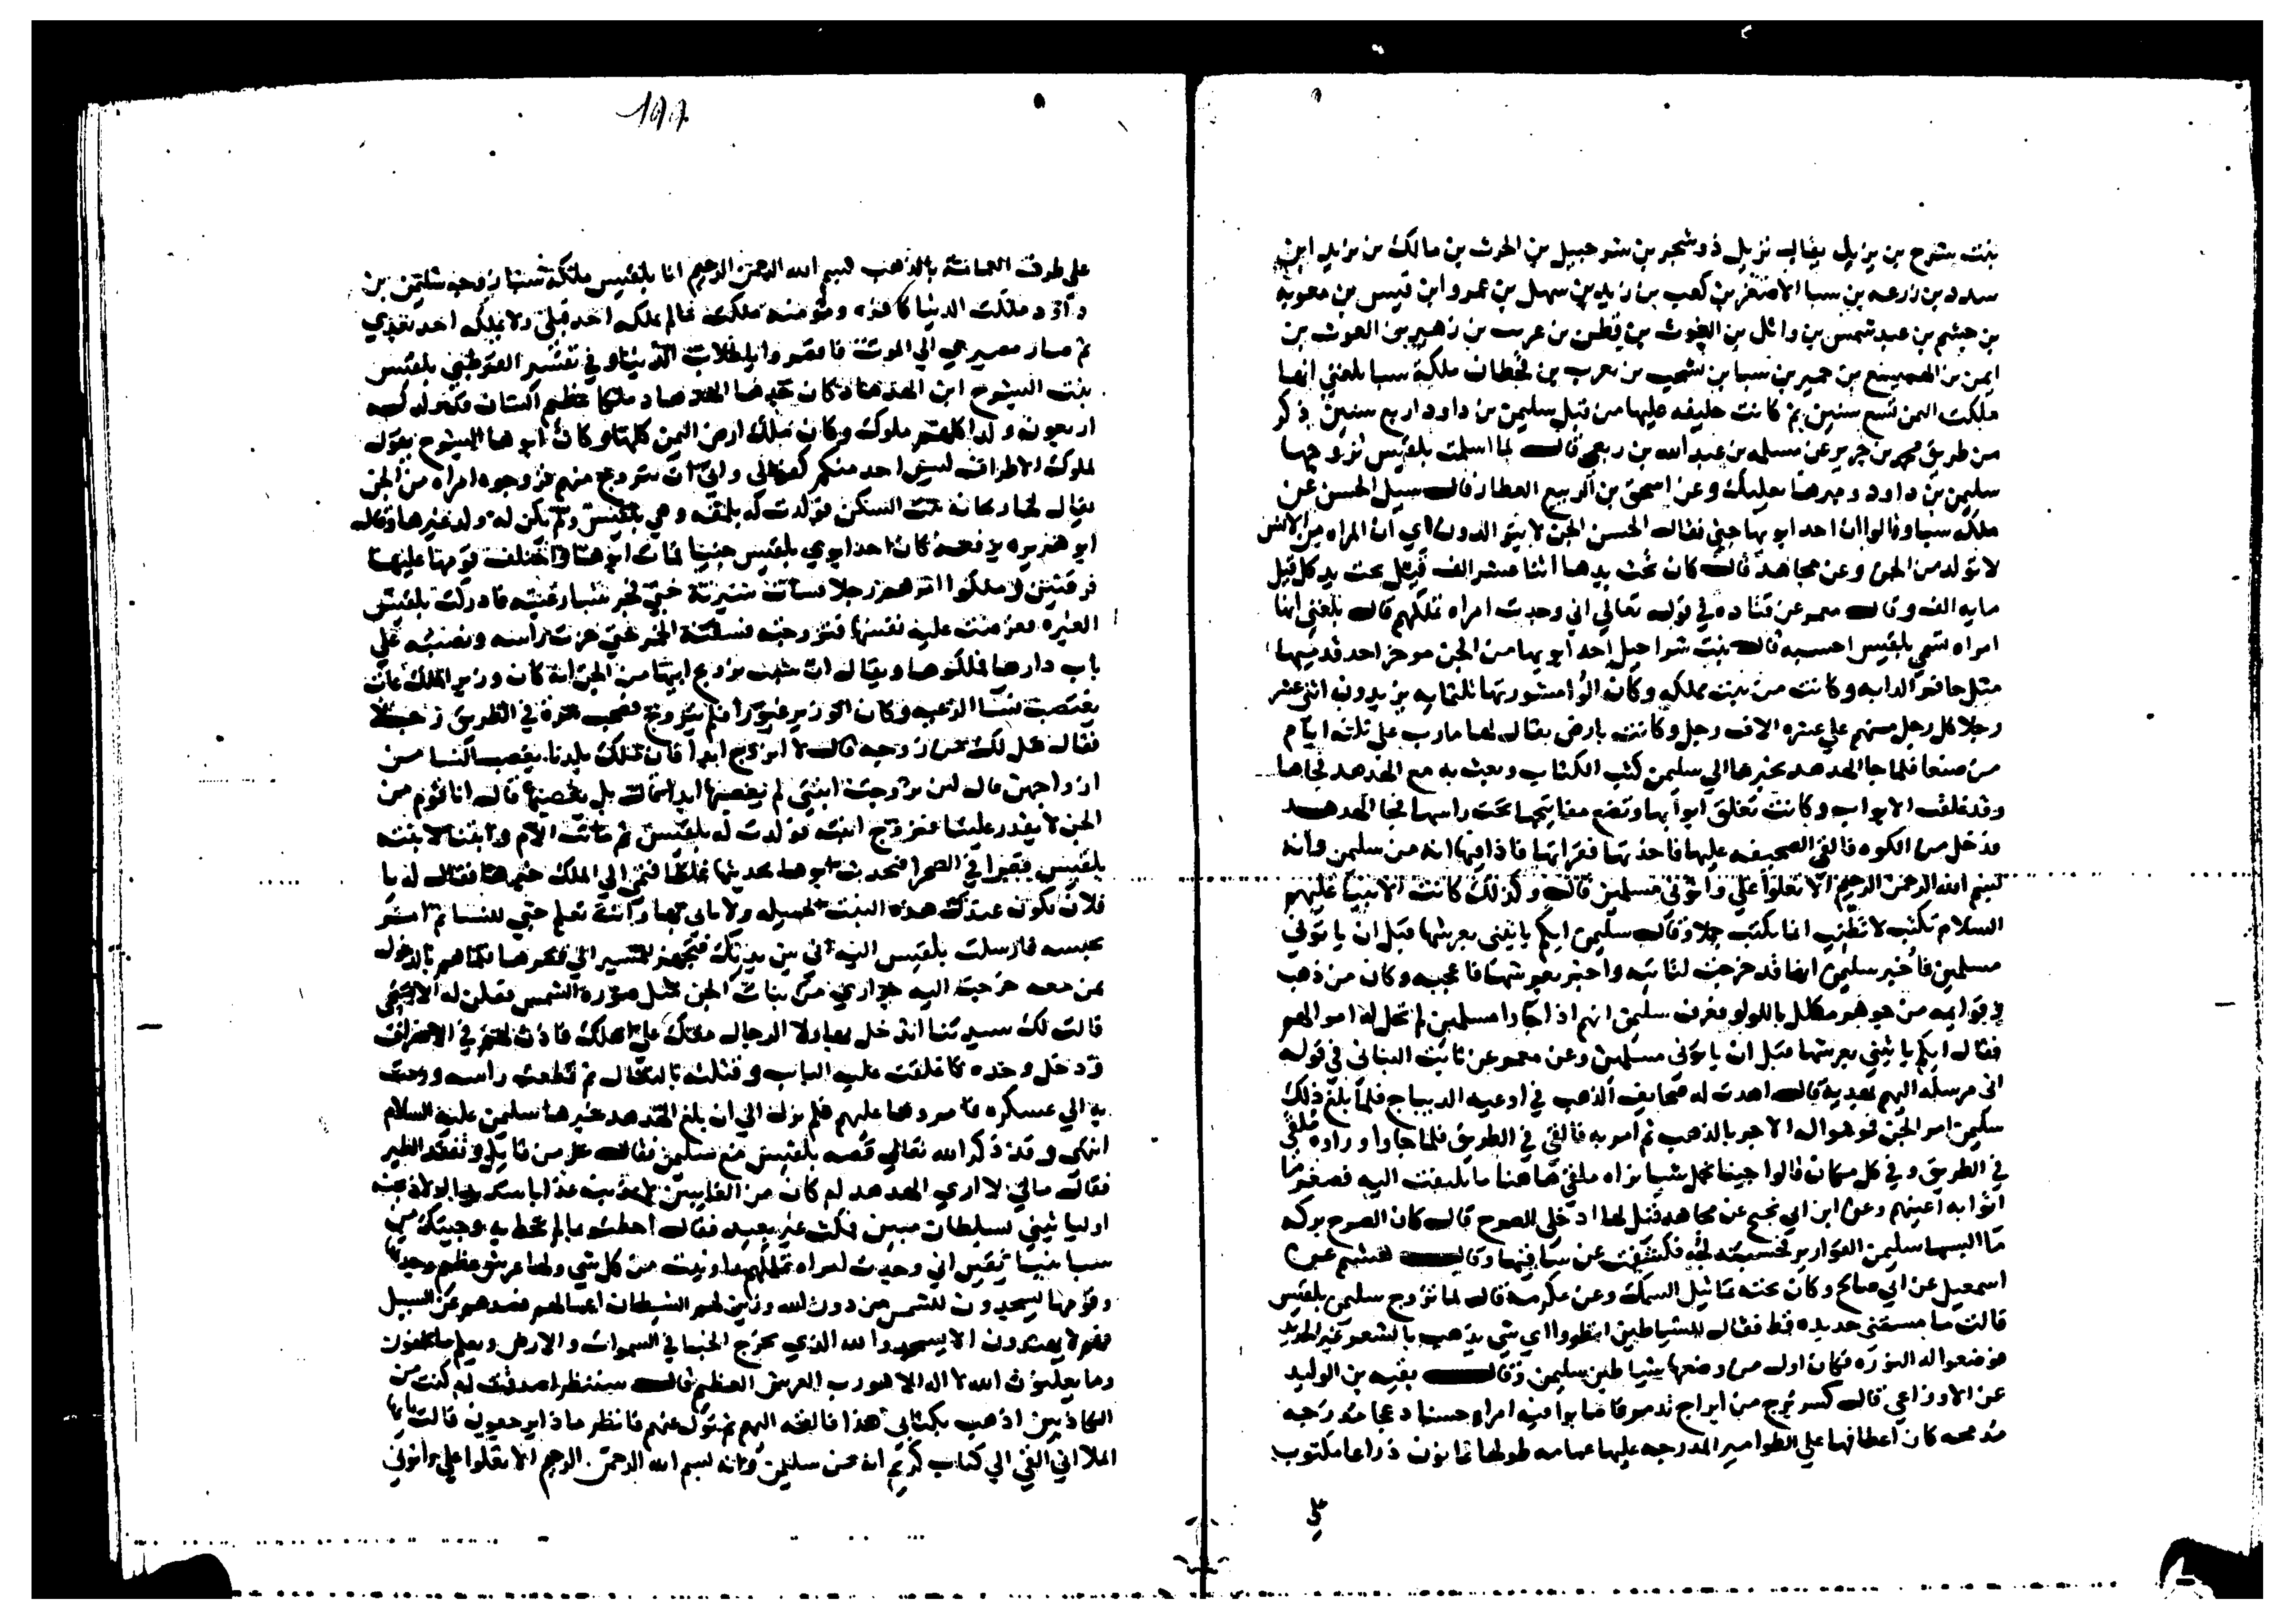 بنت شرح بن يزيل يقال نزيل ذو شجر بن شرحبيل بن الحرث بن مالك بن يزيد ابن
سدد بن زرعه بن سبا الاصغر بن كعب بن زيد بن سهل بن عمرو ابن قيس بن معويه
بن جشم بن عبد شمس بن وائل بن الغوث بن قطن بن عريب بن زهير بن الغوث بن
ايمن بن الهميسع بن حمير بن سبا بن يشجب بن يعرب بن قحطان ملكة سبا بلغني انها
ملكت اليمن تسع سنين ثم كانت خليفه عليها من قبل سليمن بن داود اربع سنين ذكر
من طريق محمد بن جرير عن مسلمه بن عبد الله بن ربعي قال لما اسلمت بلقيس تزوجها
سليمن بن داود ومهرها بعلبك وعن اسحق بن الربيع العطار قال سيل الحسن عن
ملكه سبا وقالوا ان احد ابويها جني فقال الحسن الجن لا يتوالدون اي ان المراه من الانس
لا تولد من الجن وعن مجاهد قال كان تحت يدها اثنا عشر الف قيل تحت يد كل قيل
مايه الف وقال معمر عن قتاده في قوله تعالي اني وجدت امراه تملكهم قال بلغني انها
امراه تسمي بلقيس احسبه قال بنت شراحيل احد ابويها من الجن موخر احد قدميها
مثل حافر الدابه وكانت من بيت مملكه وكان الوا مشورتها ثلثمايه يزيدون اثني عشر
رجلا كل رجل منهم علي عشره الاف رجل وكانت بارض يقال لها مارب علي ثلثه ايام
من صنعا فلما جا الهدهد بخبرها الي سليمن كتب الكتاب وبعث به مع الهدهد فجاها
وقد غلقت الابواب وكانت تغلق ابوابها وتضع مفاتيحها تحت راسها فجا الهدهد
فدخل من الكوه فالقي الصحيفه عليها فاخذتها فقراتها فاذا فيها انه من سليمن وانه
بسم الله الرحمن الرحيم الا تعلوا علي واتوني مسلمين قال وكذلك كانت الانبيا عليهم
السلام تكتب لا تطنب انما تكتب جملا وقال سليمن ايكم ياتيني بعرشها قبل ان ياتوني
مسلمين فاخبر سليمن انها قد خرجت لتاتيه واخبر بعرشها فاعجبه وكان من ذهب
وقوايمه من جوهر مكلل باللولو فعرف سليمن انهم اذا جاوا مسلمين لم تحل له اموالهم
فقال ايكم ياتيني بعرشها قبل ان ياتوني مسلمين وعن معمر عن ثابت البناني في قوله
اني مرسله اليهم بهدية قال اهدت له صحايف الذهب في اوعيه الديباج فلما بلغ ذلك
سليمن امر الجن فموهوا له الاجر بالذهب ثم امر به فالقي في الطريق فلما جاوا وراوه ملقي
في الطريق وفي كل مكان قالوا جينا نحمل شيا نراه ملقي هاهنا ما يلتفت اليه فصغر ما
اتوا به اعينهم وعن ابن ابي نجيح عن مجاهد قيل لها ادخلي الصرح قال كان الصرح بركه
ما البسها سليمن القوارير فحسبته لجه فكشفت عن ساقيها وقال هشيم عن
اسمعيل عن ابي صالح وكان تحته تماثيل السمك وعن عكرمه قال لما تزوج سليمن بلقيس
قالت ما مستني حديده قط فقال للشياطين انظروا اي شي يذهب بالشعر غير الحديد
فوضعوا له النوره فكان اول من وضعها شياطين سليمن وقال بقيه بن الوليد
عن الاوزاعي قال كسر برج من ابراج تدمر فاصابوا فيه امراه حسنا دعجا مدرجه
مدمجه كان اعطافها علي الطوامير المدرجه عليها عمامه طولها ثمانون ذراعا مكتوب
علي
199
علي طرف العمامة بالذهب بسم الله الرحمن الرحيم انا بلقيس ملكة سبا زوجه سليمن بن
داود ملكت الدنيا كافره ومومنه ملكت مالم يملكه احد قبلي ولا يملكه احد بعدي
ثم صار مصيري الي الموت فاقصروا يا طلاب الدنيا وفي تفسير القرطبي بلقيس
بنت الشرح ابن الهدهاد كان جدها الهدهاد ملكا عظيم الشان قد ولد له
اربعون ولدا كلهم ملوك وكان ملك ارض اليمن كلها وكان ابوها الشرح يقول
لملوك الاطراف ليس احد منكم كفوا لي وابي ان يتزوج منهم فزوجوه امراه من الجن
يقال لها ريحانه بنت السكن فولدت له بلقمه وهي بلقيس ولم يكن له ولد غيرها وقاله
ابو هريره يرفعه كان احد ابوي بلقيس جنيا فمات ابوها فاختلف قومها عليها
فرقتين وملكوا امرهم رجلا ساءت سيرته حتي فجر بنسا رعيته فادركت بلقيس
الغيره فعرضت عليه نفسها فتزوجته فسقته الخمر حتي حزت راسه ونصبته علي
باب دارها فملكوها ويقال ان سبب تزوج ابيها من الجن انه كان وزير الملك عات
يغتصب نسا الرعيه وكان الوزير غيورا فلم يتزوج فصحب مره في الطريق رجلا
فقال هل لك من زوجه قال لا اتزوج ابدا فان ملك بلدنا يغصب النسا من
ازواجهن قال لين تزوجت ابنتي لم يغصبها ابدا قال بل يغصبها قال انا قوم من
الجن لا يقدر علينا فتزوج ابنته فولدت له بلقيس ثم ماتت الام وابقنا لا بنته
بلقيس قصرا في الصحرا فتحدث ابوها بحديثها غلطا فنمي الي الملك خبرها فقال له يا
فلان تكون عندك هذه البنت الجميله ولا تاتيني بها وانت تعلم حبي للنسا ثم امر
بحبسه فارسلت بلقيس اليه اني بين يديك فتجهز للمسير الي قصرها فلما هم بالدخول
بمن معه خرجت اليه جواري من بنات الجن مثل صوره الشمس فقلن له الا تستحي
قالت لك سيدتنا اتدخل بهاولا الرجال معك علي اهلك فاذن لهم في الانصراف
ودخل وحده فاغلقت عليه الباب وقتلته بالنعال ثم قطعت راسه ورمت
به الي عسكره فامروها عليهم فلم يزل الي ان بلغ الهدهد خبرها سليمن عليه السلام
انتهي وقد ذكر الله تعالي قصه بلقيس مع سليمن فقال عز من قايل وتفقد الطير
فقال مالي لا اري الهدهد ام كان من الغايبين لاعذبنه عذابا شديدا او لاذبحنه
او لياتيني بسلطان مبين فمكث غير بعيد فقال احطت بما لم تحط به وجيتك من
سبا بنبا يقين اني وجدت امراه تملكهم واوتيت من كل شي ولها عرش عظيم وجدتها
وقومها يسجدون للشمس من دون الله وزين لهم الشيطان اعمالهم فصدهم عن السبيل
فهم لا يهتدون الا يسجدوا لله الذي يخرج الخبا في السموات والارض ويعلم ما تخفون
وما يعلنون الله لا اله الا هو رب العرش العظيم قال سننظر اصدقت ام كنت من
الكاذبين اذهب بكتابي هذا فالقه اليهم ثم تول عنهم فانظر ماذا يرجعون قالت يا ايها
الملا اني القي الي كتاب كريم انه من سليمن وانه بسم الله الرحمن الرحيم الا تعلوا علي واتوني